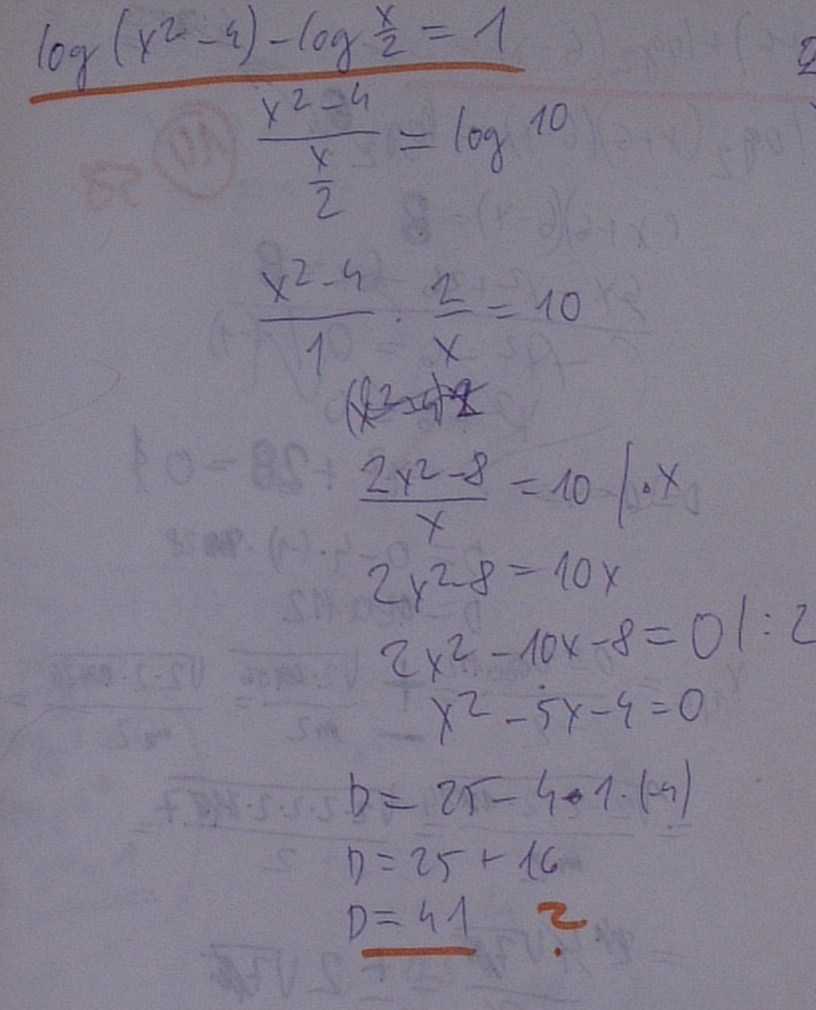 log (x² - 4) - log x/2 = 1
(x² - 4)/(x/2) = log 10
(x² - 4)/1 · 2/x = 10
(2x² - 8)/x = 10 / · x
2x² - 8 = 10x
2x² - 10x - 8 = 0 / : 2
x² - 5x - 4 = 0
D = 25 - 4 · 1 · (-4)
D = 25 + 16
D = 41 ?